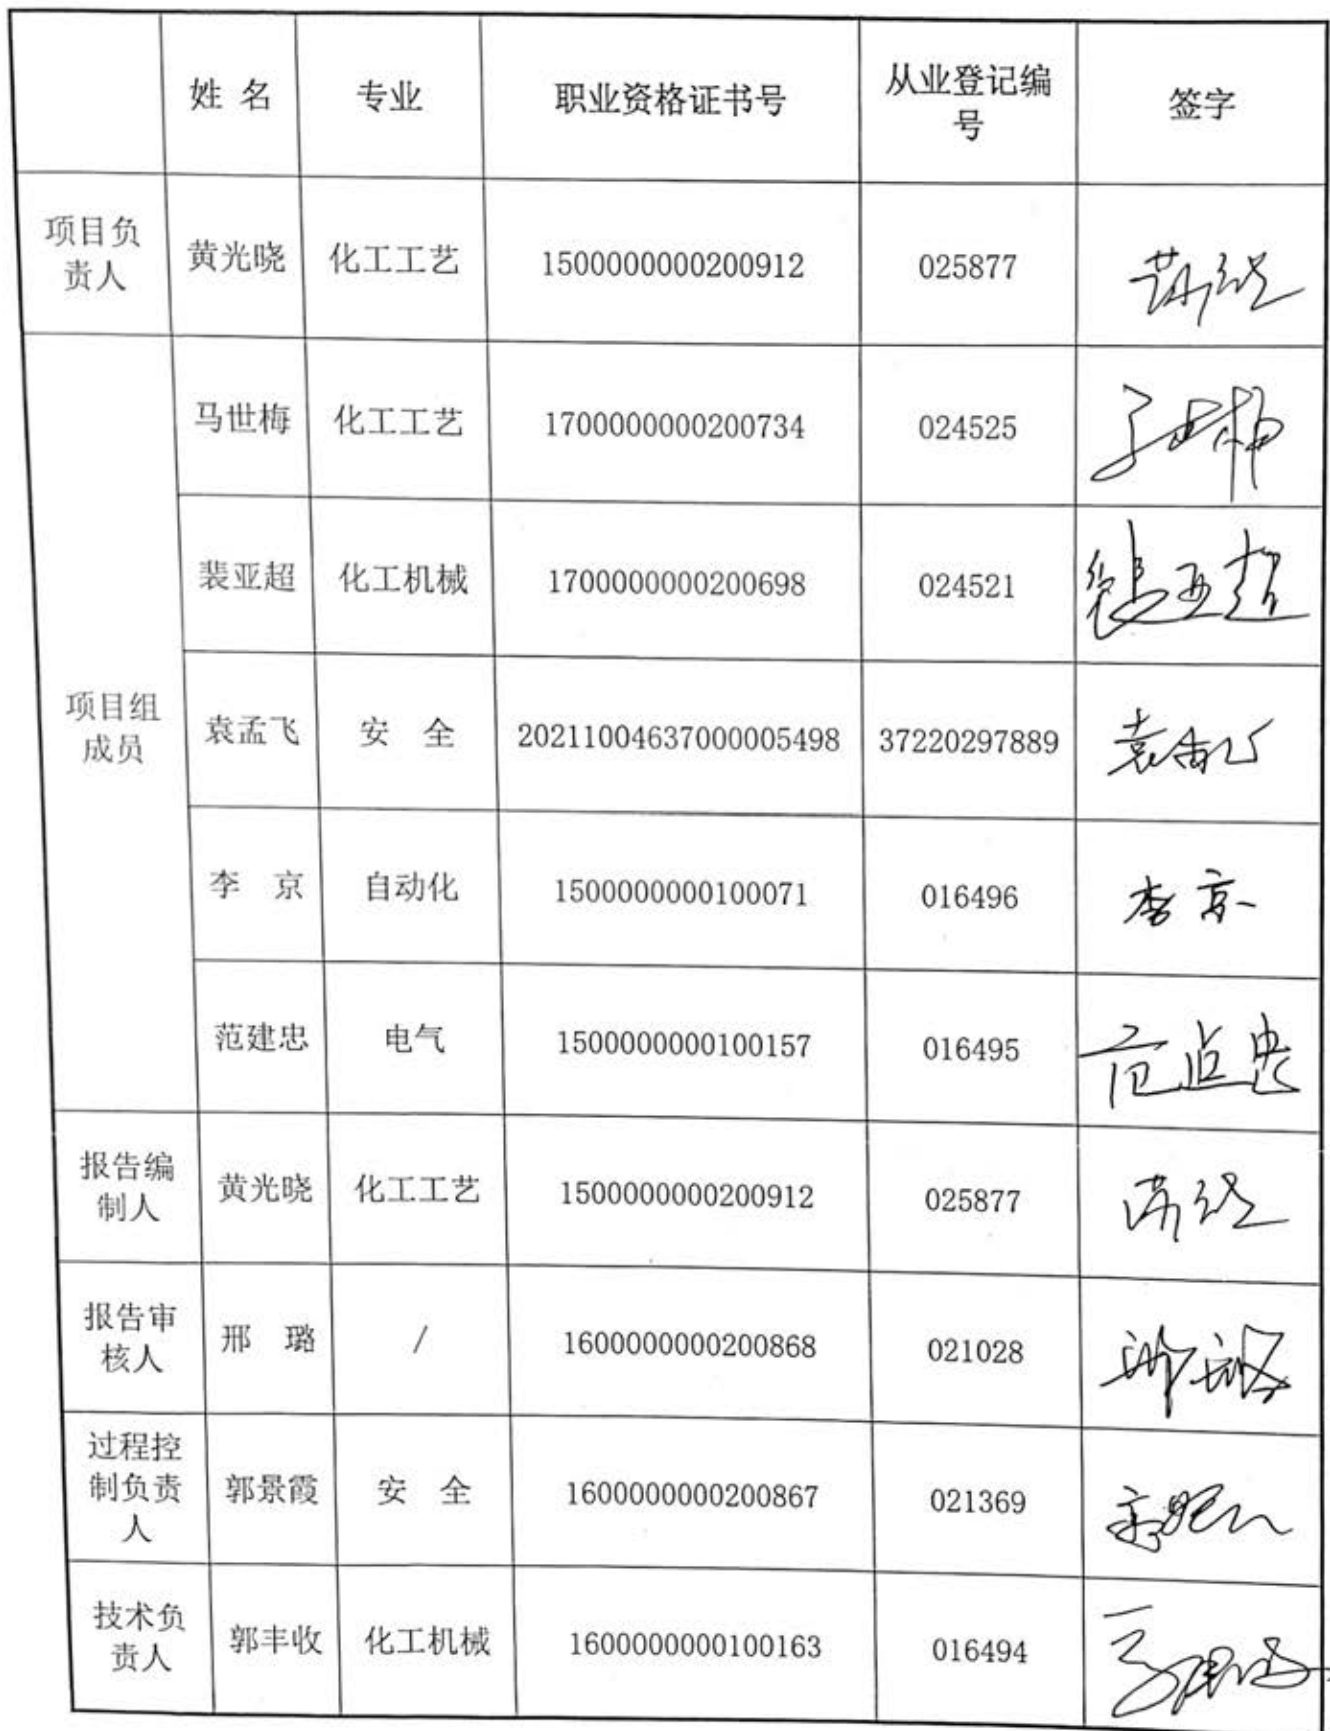 姓 名 专业 职业资格证书号 从业登记编号 签字
项目负责人 黄光晓 化工工艺 1500000000200912 025877
项目组成员 马世梅 化工工艺 1700000000200734 024525
裴亚超 化工机械 1700000000200698 024521 裴亚超
袁孟飞 安 全 20211004637000005498 37220297889 袁孟飞
李 京 自动化 1500000000100071 016496 李京
范建忠 电气 1500000000100157 016495 范建忠
报告编制人 黄光晓 化工工艺 1500000000200912 025877
报告审核人 邢 璐 / 1600000000200868 021028
过程控制负责人 郭景霞 安 全 1600000000200867 021369
技术负责人 郭丰收 化工机械 1600000000100163 016494